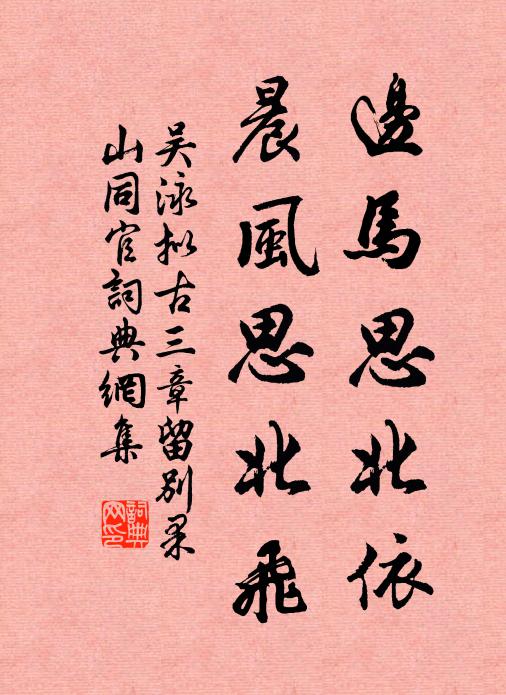 邊馬思北依
晨風思北飛
吳泳拟古三章留别果
山同官詞典網集
詞典
网印